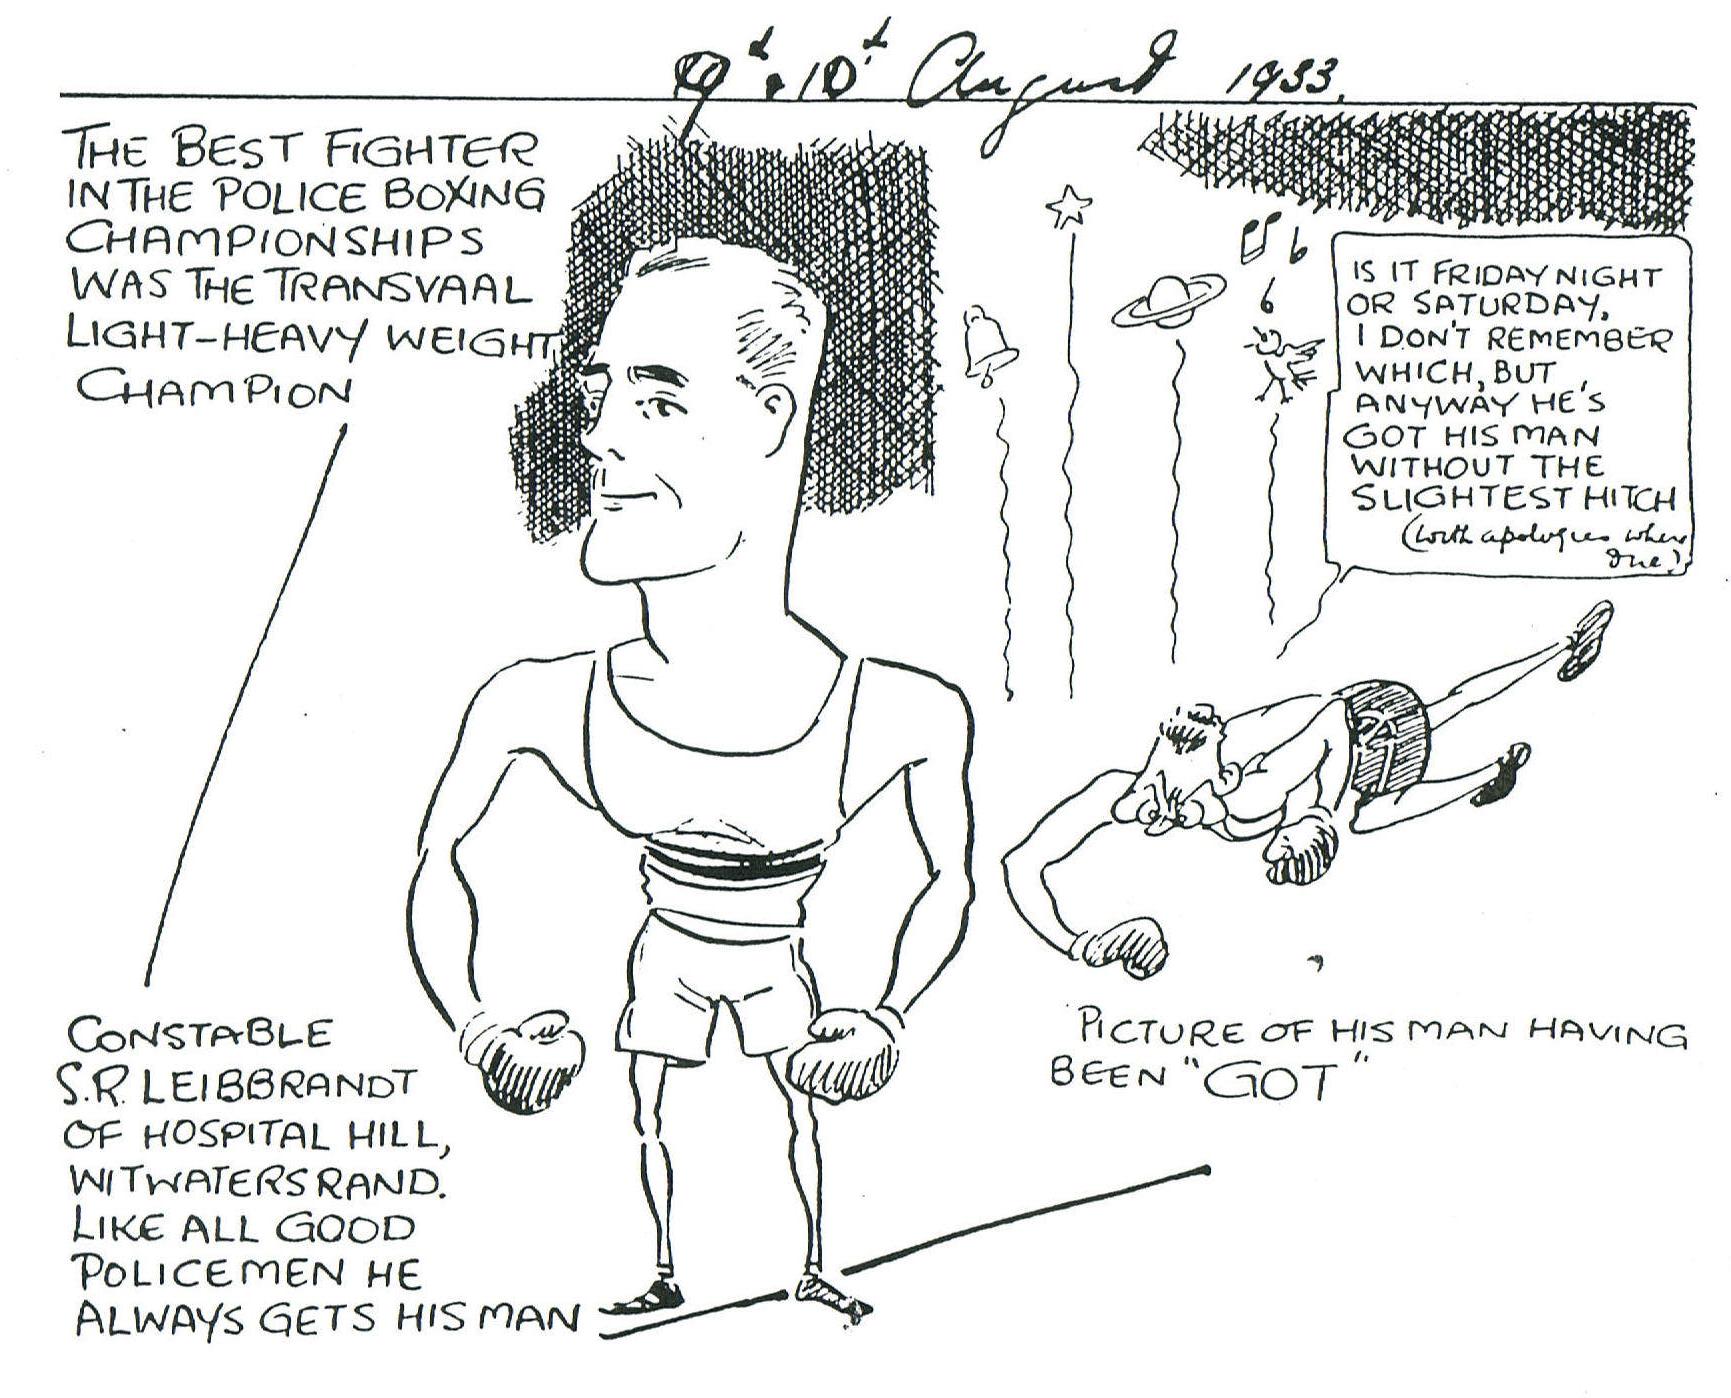 9th & 10th August 1933.
THE BEST FIGHTER
IN THE POLICE BOXING
CHAMPIONSHIPS
WAS THE TRANSVAAL
LIGHT-HEAVY WEIGHT
CHAMPION
IS IT FRIDAY NIGHT
OR SATURDAY.
I DON'T REMEMBER
WHICH, BUT,
ANYWAY HE'S
GOT HIS MAN
WITHOUT THE
SLIGHTEST HITCH
(with apologies where
due.)
CONSTABLE
S.R. LEIBBRANDT
OF HOSPITAL HILL,
WITWATERSRAND.
LIKE ALL GOOD
POLICEMEN HE
ALWAYS GETS HIS MAN
PICTURE OF HIS MAN HAVING
BEEN "GOT"